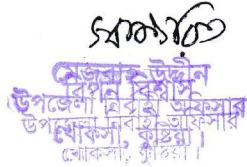 স্বাক্ষরিত
মেজবাহ উদ্দীন
বিপন বিশ্বাস
উপজেলা নির্বাহী অফিসার
উপজেলা নির্বাহী অফিসার
খোকসা, কুষ্টিয়া।
খোকসা, কুষ্টিয়া।